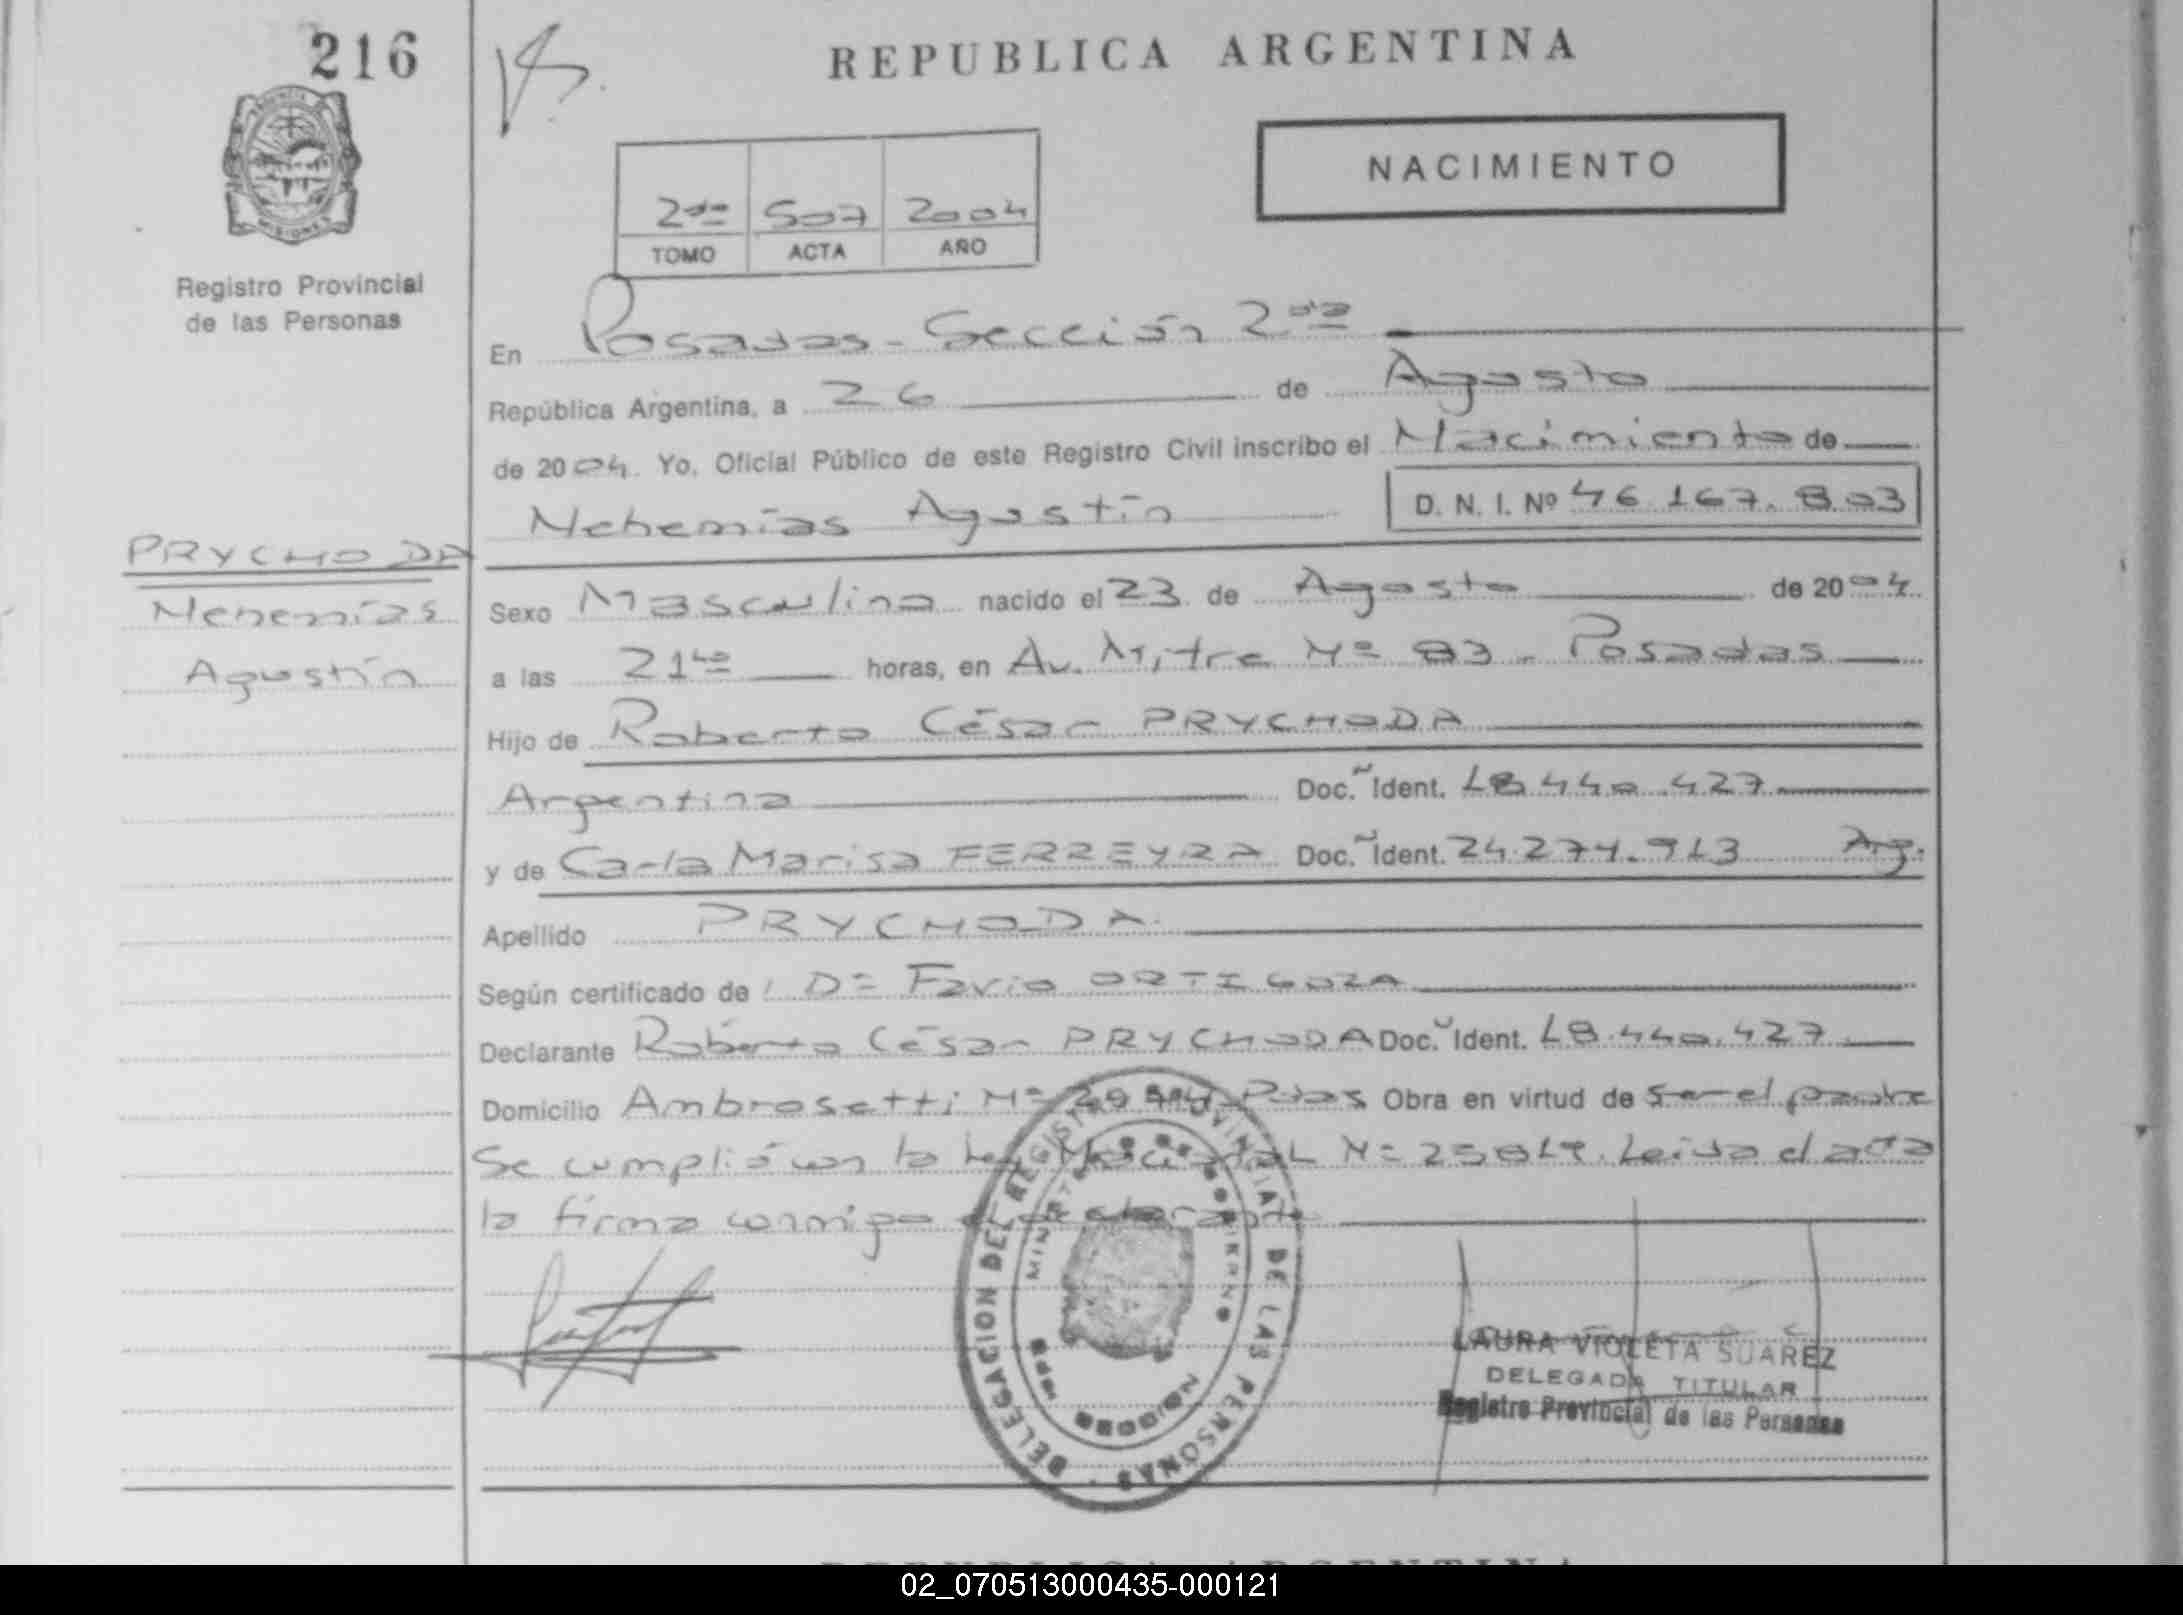 216
REPUBLICA ARGENTINA
NACIMIENTO
2do 507 2004
TOMO ACTA AÑO
Registro Provincial
de las Personas
En Posadas - Sección 2da
República Argentina, a 26 de Agosto
de 2004. Yo, Oficial Público de este Registro Civil inscribo el Nacimiento de
Nehemías Agustín D. N. I. Nº 46.167.803
PRYCHODA
Nehemías
Agustín
Sexo Masculino nacido el 23 de Agosto de 2004.
a las 21 horas, en Av. Mitre Nº 83 - Posadas
Hijo de Roberto César PRYCHODA
Argentina Doc. Ident. 18.440.427
y de Carla Marisa FERREYRA Doc. Ident. 24.274.913 Arg.
Apellido PRYCHODA
Según certificado de Favio ORTIGOZA
Declarante Roberto César PRYCHODA Doc. Ident. 18.440.427
Domicilio Ambrosetti Nº Pdas Obra en virtud de ser el padre
Se cumplió con la Ley Nacional Nº 25819. Leída el acta
la firma conmigo el declarante
DELEGACION DEL REGISTRO PROVINCIAL DE LAS PERSONAS
MINISTERIO DE GOBIERNO
MISIONES
LAURA VIOLETA SUAREZ
DELEGADA TITULAR
Registro Provincial de las Personas
REPUBLICA ARGENTINA
02_070513000435-000121